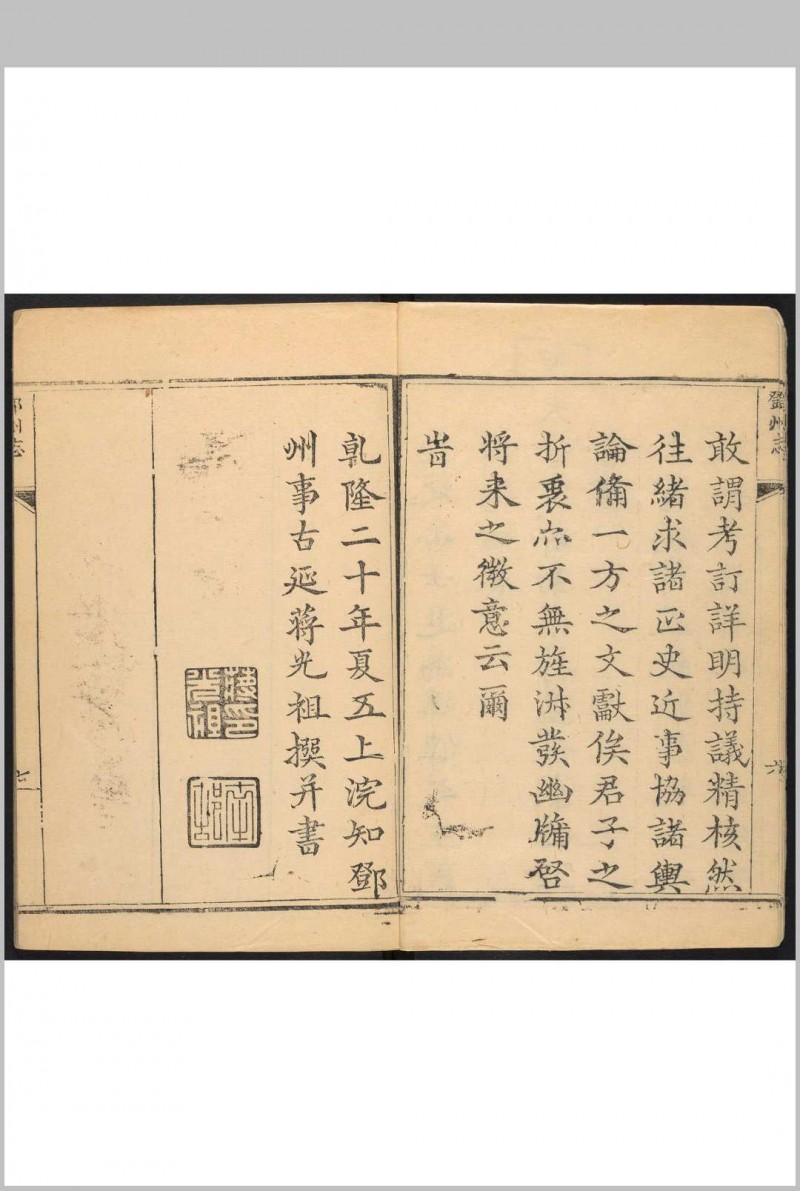 鄧州志
敢謂考訂詳明持議精核然
往緒求諸正史近事協諸輿
論俻一方之文獻俟君子之
折衷亦不無旌淑發幽牗啓
将来之微意云爾
旹
六
乾隆二十年夏五上浣知鄧
州事古延蔣光祖撰并書
蔣光祖印
鄧州志
七